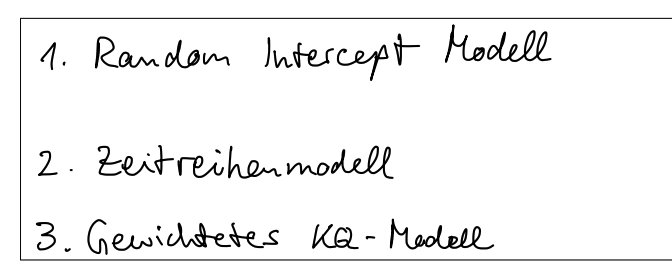 1. Random Intercept Modell
2. Zeitreihenmodell
3. Gewichtetes KQ-Modell